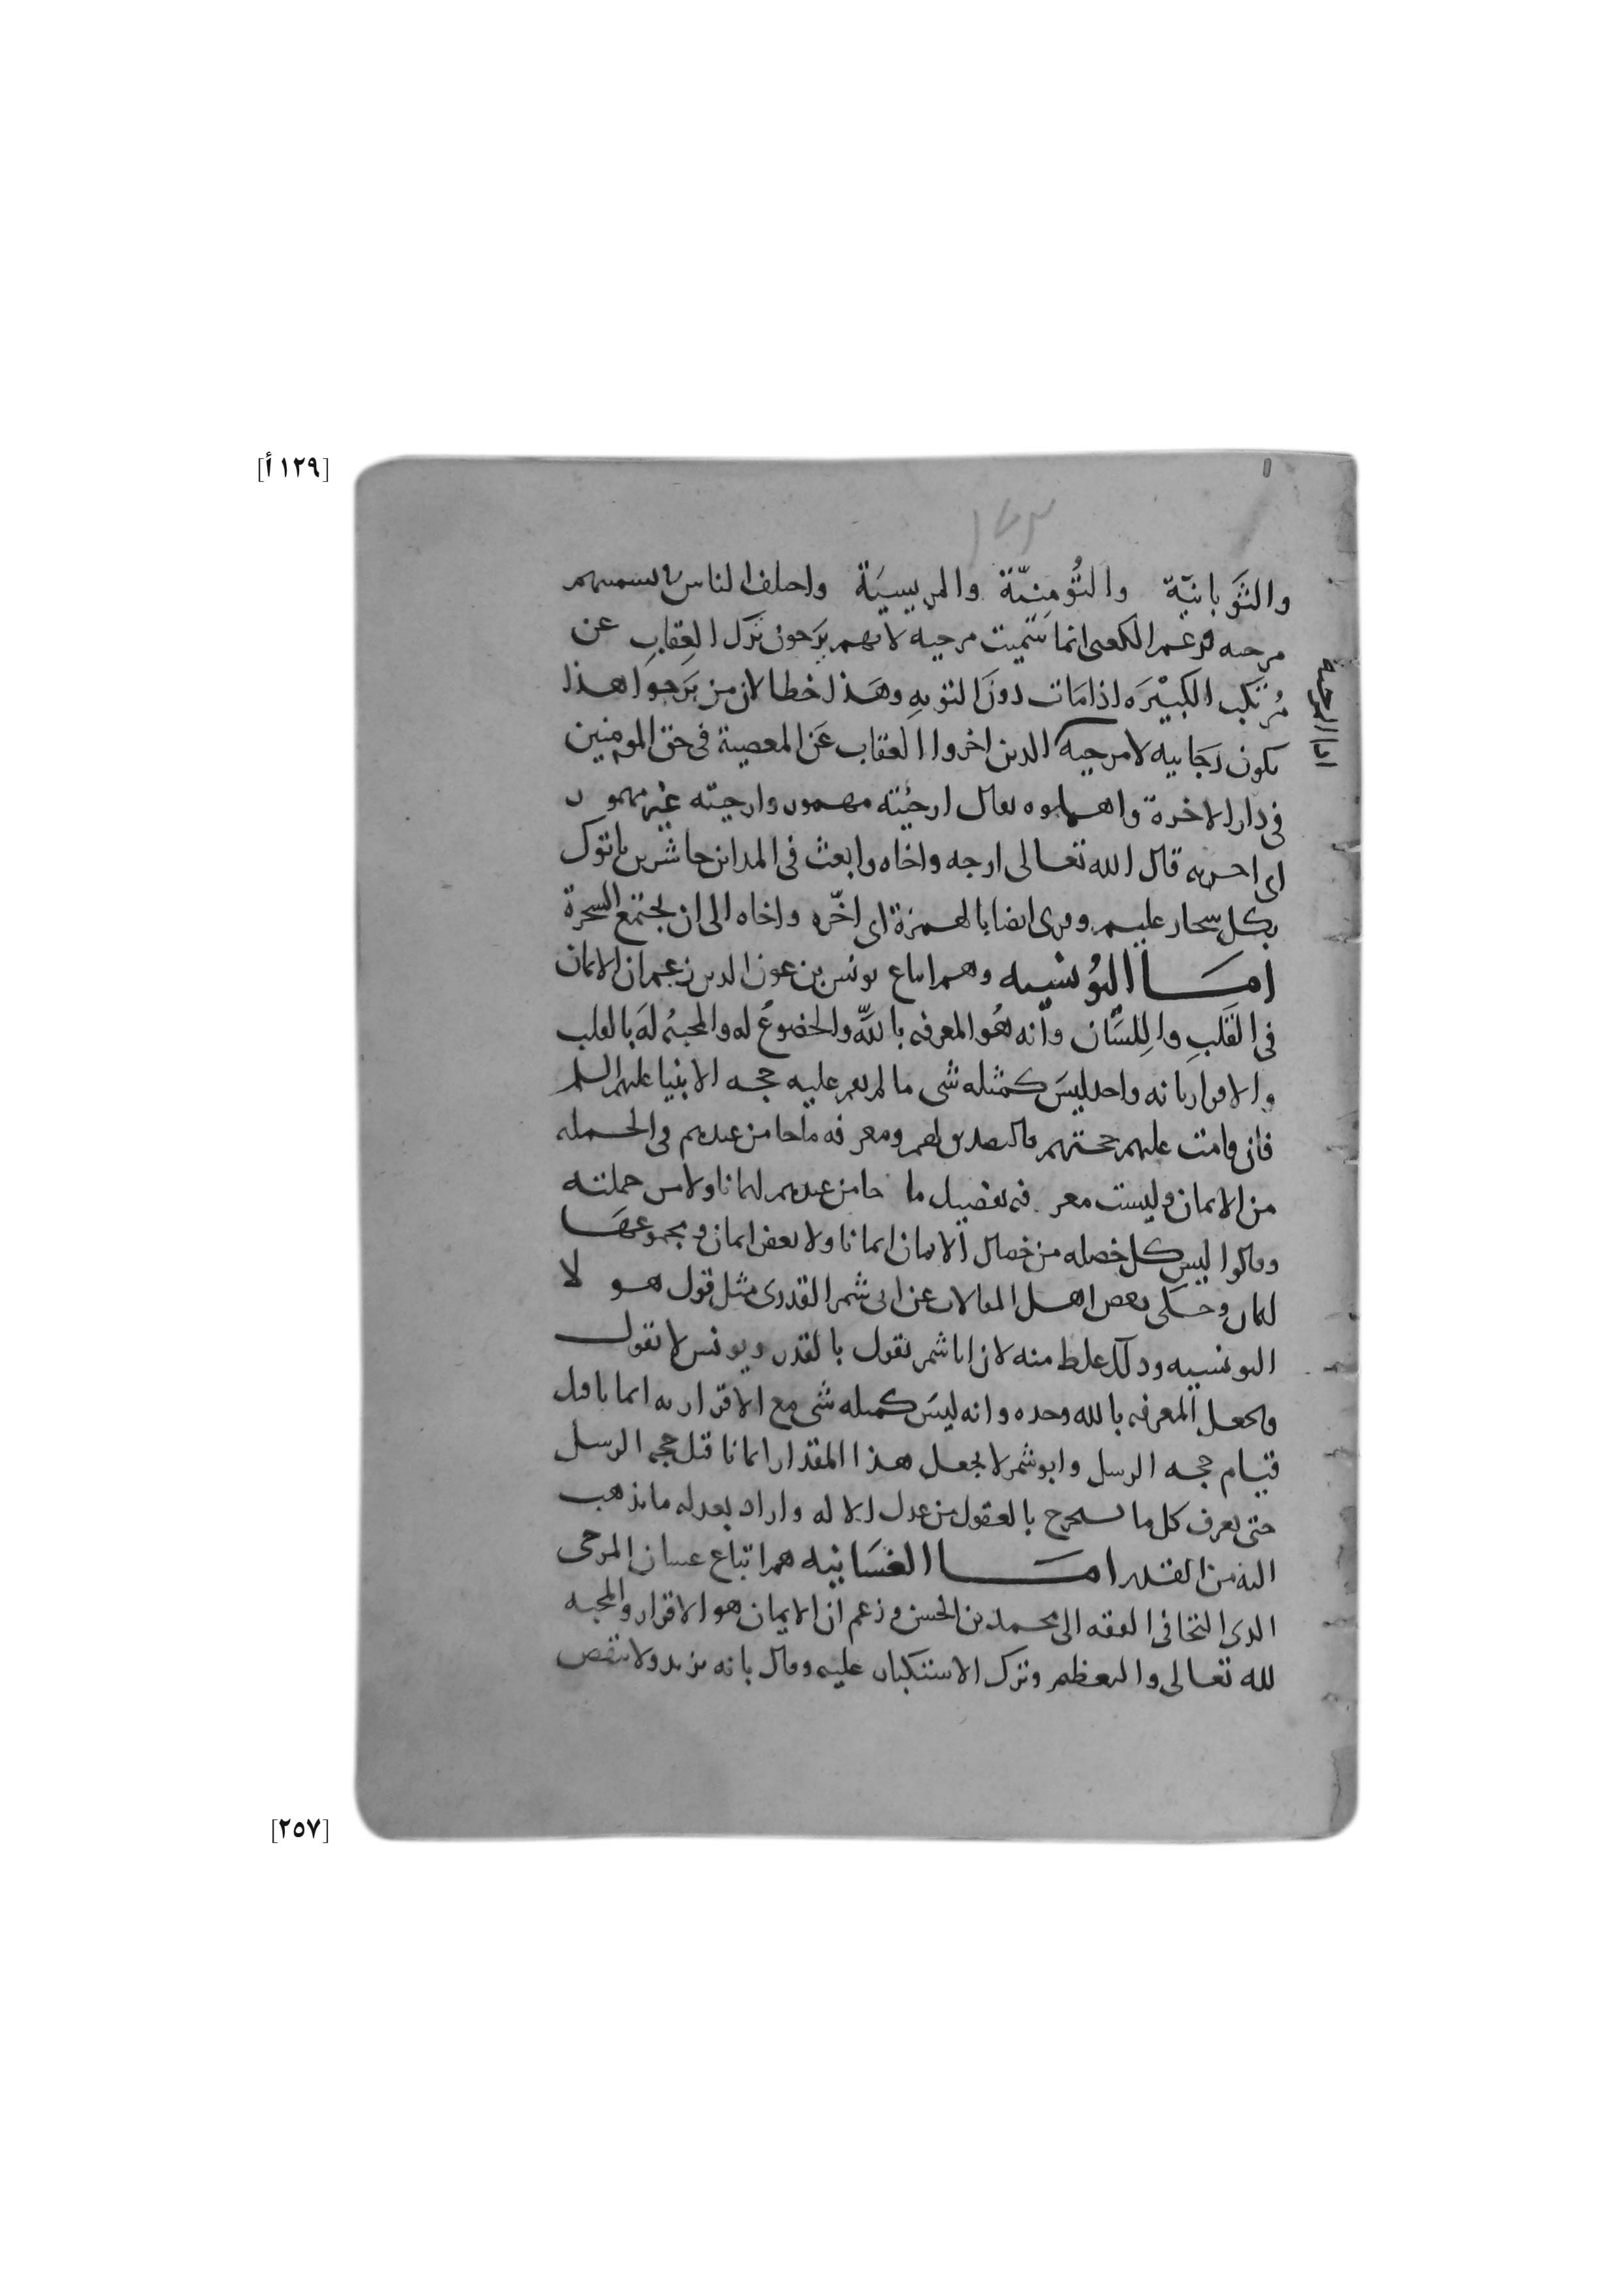 [١٢٩ أ]
والثَّوبانيّة والتُّومِنيّة والمريسيَّة واختلف الناس في تسميتهم
مرجيه فزعم الكعبي انما سُمّيت مرجيه لانهم يَرجون تَرك العِقابِ عن
مُرتكب الكبيْرَه اذا مَات دونَ التوبهِ وهَذا خطا لان من يَرجوا هذا
يكون رجَاييه لا مرجيه الدين اخروا العقاب عَن المعصية في حق المومنين
في دار الاخرة واهملوه يقال ارجيُته مهموز وارجيته غير مهموز
اي اخرته قال الله تعالى ارجه واخاه وابعث في المداين حاشرين ياتوك
بكل سحار عليم وقرى ايضا بالهمزة اى اخّره واخاه الى ان يجتمع السحرة
امَـــا اليُونسيه وهم اتباع يونس بن عون الدين زعم ان الايمان
في القَلبِ واللِسَّان وانه هُو المعرفه باللّه والخضوعُ له والمحبهُ لهَ بالقلب
والاقرار بانه واحد ليسَ كمثله شي ما لم يقم عليه حجه الانبيا عليهم السلم
فان قامت عليهم حجتهم فالتصديق لهم ومعرفه ما جا من عندهم في الجمله
من الايمان وليست معرفه تفصيل ما جا من عندهم ايمانا ولا من جملته
وقالوا ليس كل خصله من خصال الايمان ايمانا ولا بعض ايمان ومجموعهَا
ايمان وحكى بعض اهل المقالات عن ابى شمر القدرى مثل قول هولا
اليونسيه وذلك غلط منه لان ابا شمر يقول بالقدر ويونس لا يقول
ويجعل المعرفه بالله وحده وانه ليسَ كمثله شي مع الاقرار به ايمانا قبل
قيام حجه الرسل وابو شمر لا يجعل هذا المقدار ايمانا قبل حجه الرسل
حتى يعرف كل ما يستخرج بالعقول من عدل الاله واراد بعدله ما يذهب
اليه من القدر امَـــا الغسَانيه هم اتباع غسان المرجى
الدى التجا في الفقه الى محمد بن الحسن وزعم ان الايمان هو الاقرار والمحبه
لله تعالى والتعظيم وترك الاستكبار عليه وقال بانه يزيد ولا ينقص
[٢٥٧]